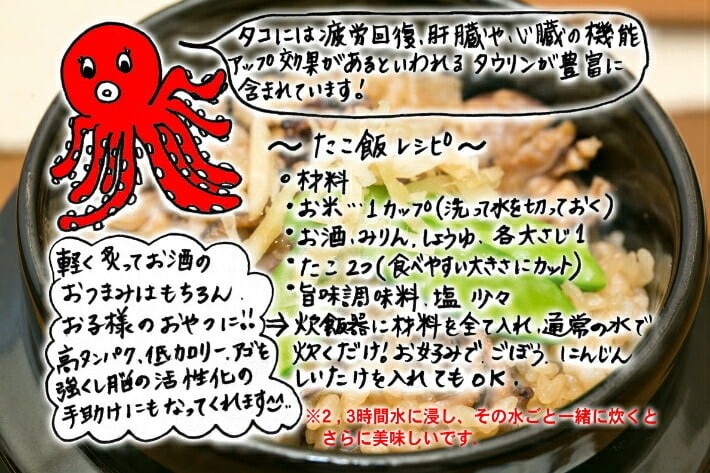 タコには疲労回復、肝臓や、心臓の機能
アップ効果があるといわれるタウリンが豊富に
含まれています!
～たこ飯レシピ～
・材料
・お米…1カップ(洗って水を切っておく)
・お酒、みりん、しょうゆ、各大さじ1
・たこ2つ(食べやすい大きさにカット)
・旨味調味料、塩 少々
⇒炊飯器に材料を全て入れ、通常の水で
炊くだけ!お好みで、ごぼう、にんじん
しいたけを入れてもOK.
※2,3時間水に浸し、その水ごと一緒に炊くと
さらに美味しいです.
軽く炙ってお酒の
おつまみはもちろん、
お子様のおやつに!!
高タンパク、低カロリー、アゴも
強くし脳の活性化の
手助けにもなってくれます